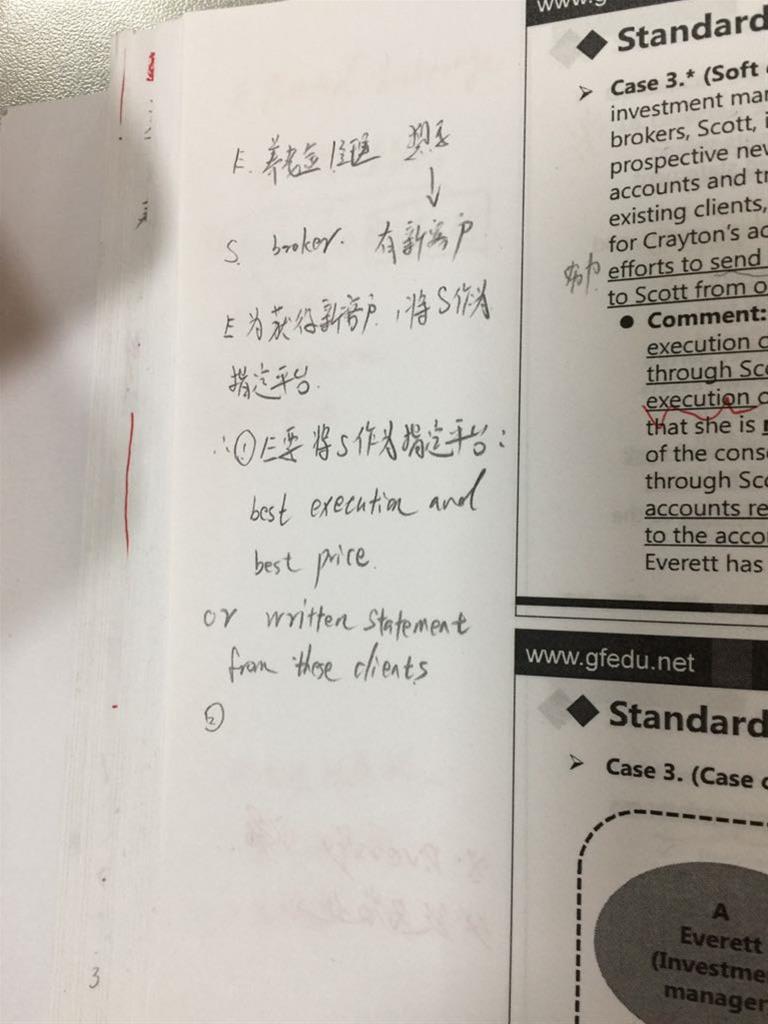 E. 养老金经理 想要
↓
S. broker. 有新客户
E为获得新客户，将S作为
指定平台.
∴①E要将S作为指定平台：
best execution and
best price.
or written statement
from these clients
②
3
Standard
Case 3.* (Soft
investment ma
brokers, Scott, i
prospective ne
accounts and tr
existing clients,
for Crayton's ac
efforts to send
to Scott from o
努力
Comment:
execution o
through Sco
execution o
that she is
of the cons
through Sco
accounts re
to the acco
Everett has
www.gfedu.net
Standard
Case 3. (Case
A
Everett
(Investme
manager